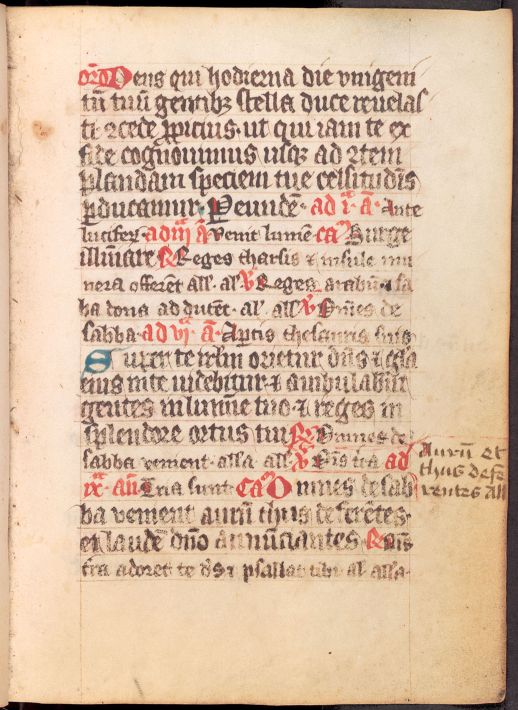 oro Deus qui hodierna die vnigeni
tū tuū gentibꝫ stella duce reuelas
ti ꝯcede ꝓpicius. ut qui iam te ex
fide cognouimus usqꝫ ad ꝯtem
plandam speciem tue celsitudīs
ꝑducamur. Ꝑeundē. ad i. ā. Ante
luciferū ad iii ā venit lumē caꝫ Surge
illuīare ℟ Reges tharsis ⁊ insule mu
nera offerēt all. al. ℣ Reges arabū ⁊ sa
ba dona adducēt. al. all ℣ Om̄es de
sabba. ad vi. ā. Aꝑtis thesauris suis
Super te ierlm orietur dn̄s ⁊ gla
eius in te uidebitur. ⁊ ambulabūt
gentes in lumīe tuo. ⁊ reges in
splendore ortus tui ℟ Omnes de
sabba venient. alla all ℣ Om̄is tra ad
ix. an̄. Tria sunt caꝫ Omnes de sab
ba venient aurū thus deferētes.
et laudē dn̄o annunciantes. ℟ Om̄s
tra adoret te ds ⁊ psallat tibi al alla.
Aurū et
thus defe
rentes all